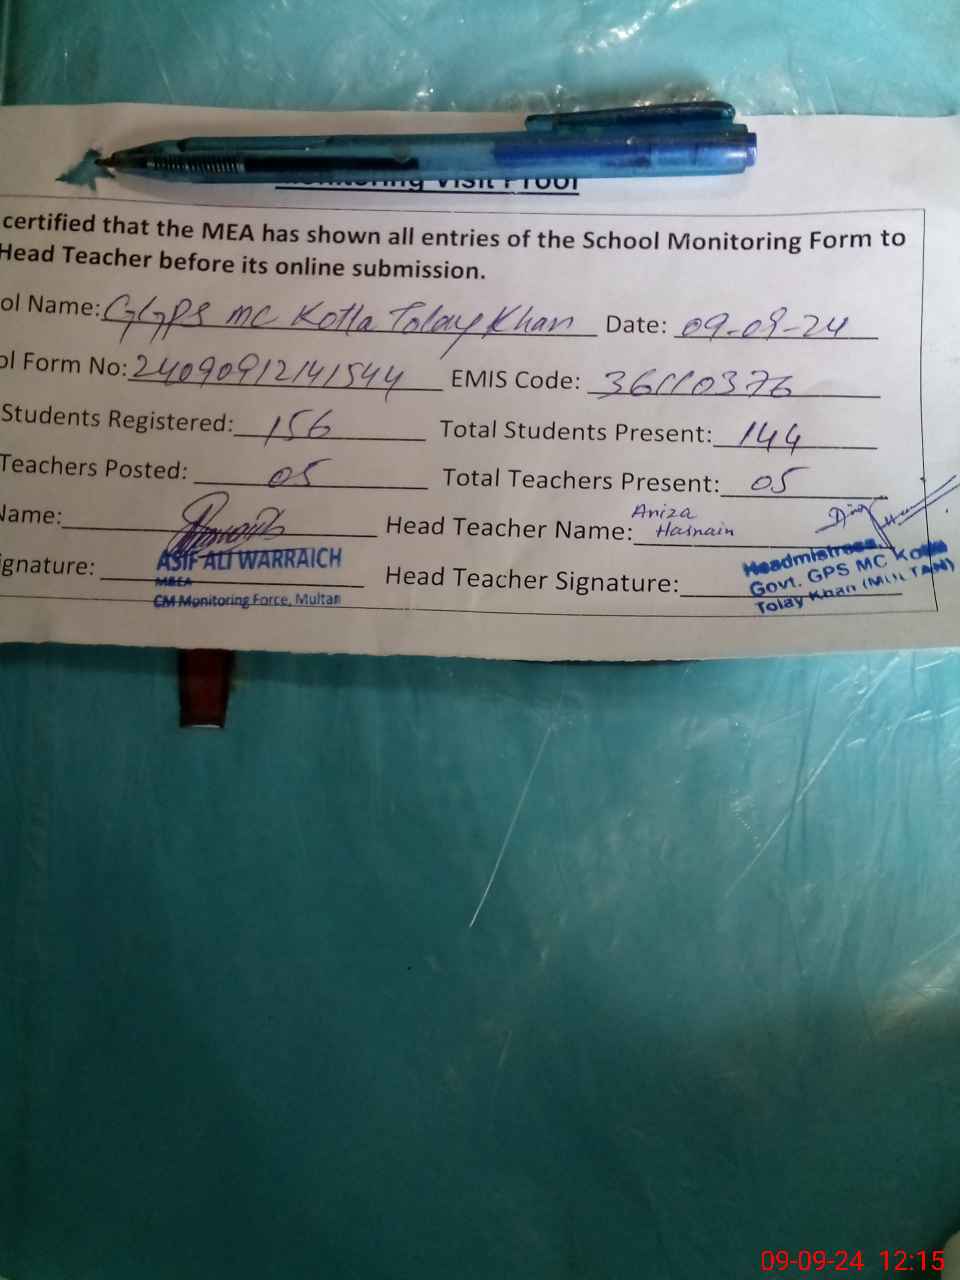 Monitoring Visit Proof
certified that the MEA has shown all entries of the School Monitoring Form to
Head Teacher before its online submission.
ol Name: GGPS MC Kotla Tolay Khan Date: 09-09-24
ol Form No: 24090912141544 EMIS Code: 36110376
Students Registered: 156 Total Students Present: 144
Teachers Posted: 05 Total Teachers Present: 05
Name: Head Teacher Name: Aniza Hasnain
ignature: Head Teacher Signature:
ASIF ALI WARRAICH
MEA
CM Monitoring Force, Multan
Headmistress
Govt. GPS MC Kotla
Tolay Khan (MULTAN)
09-09-24 12:15